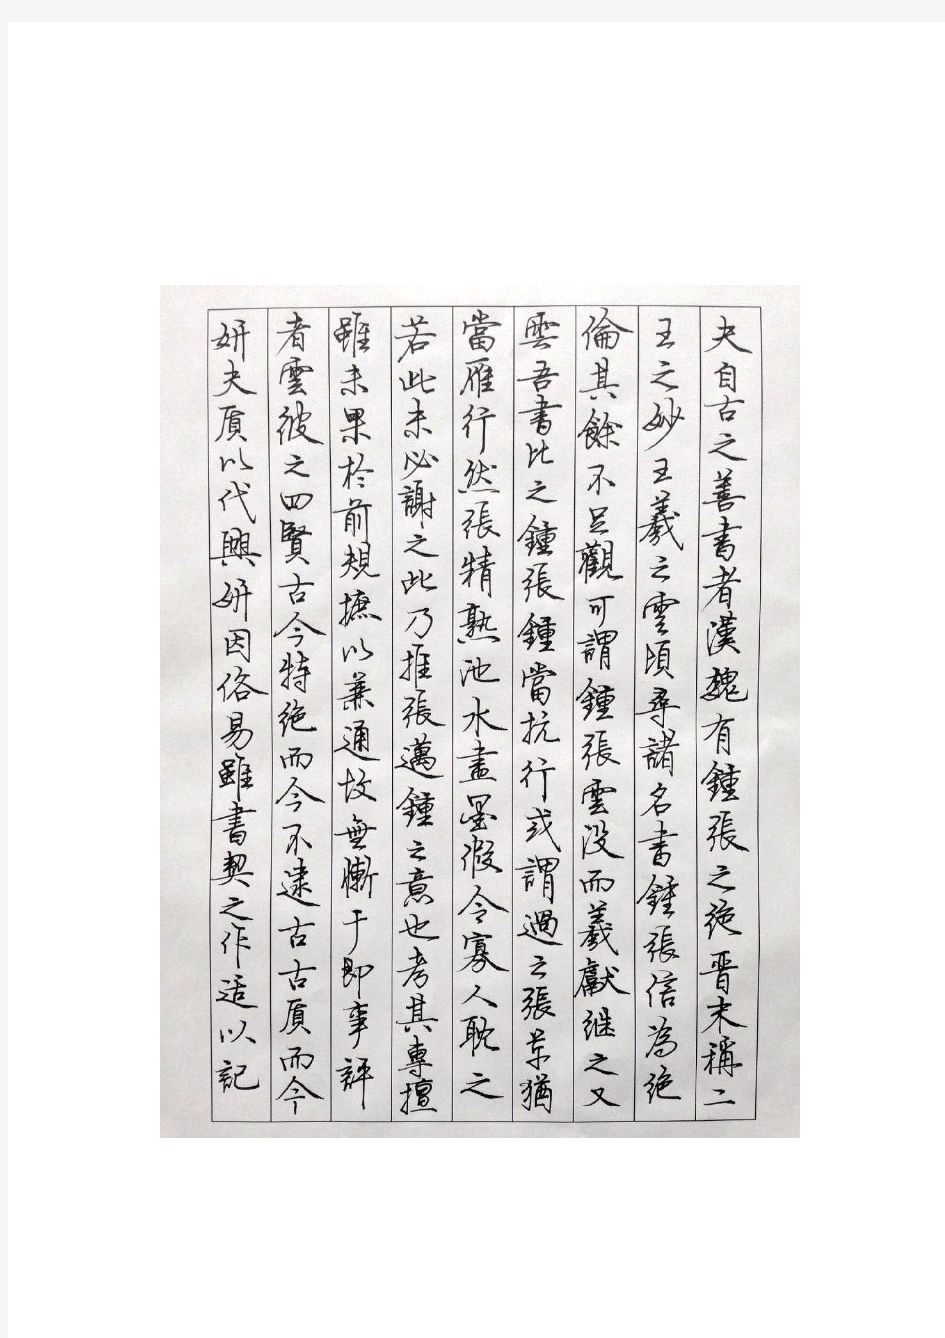 夫自古之善書者漢魏有鍾張之绝晋末稱二
王之妙王羲之雲頃尋諸名書鍾張信為绝
倫其餘不足觀可謂鍾張雲没而羲獻继之又
雲吾書比之鍾張鍾當抗行或謂過之張草猶
當雁行然張精熟池水盡墨假令寡人耽之
若此未必謝之此乃推張邁鍾之意也考其專擅
雖未果於前規摭以兼通故無慚于即事評
者雲彼之四賢古今特绝而今不逮古古質而今
妍夫質以代興妍因俗易雖書契之作适以記